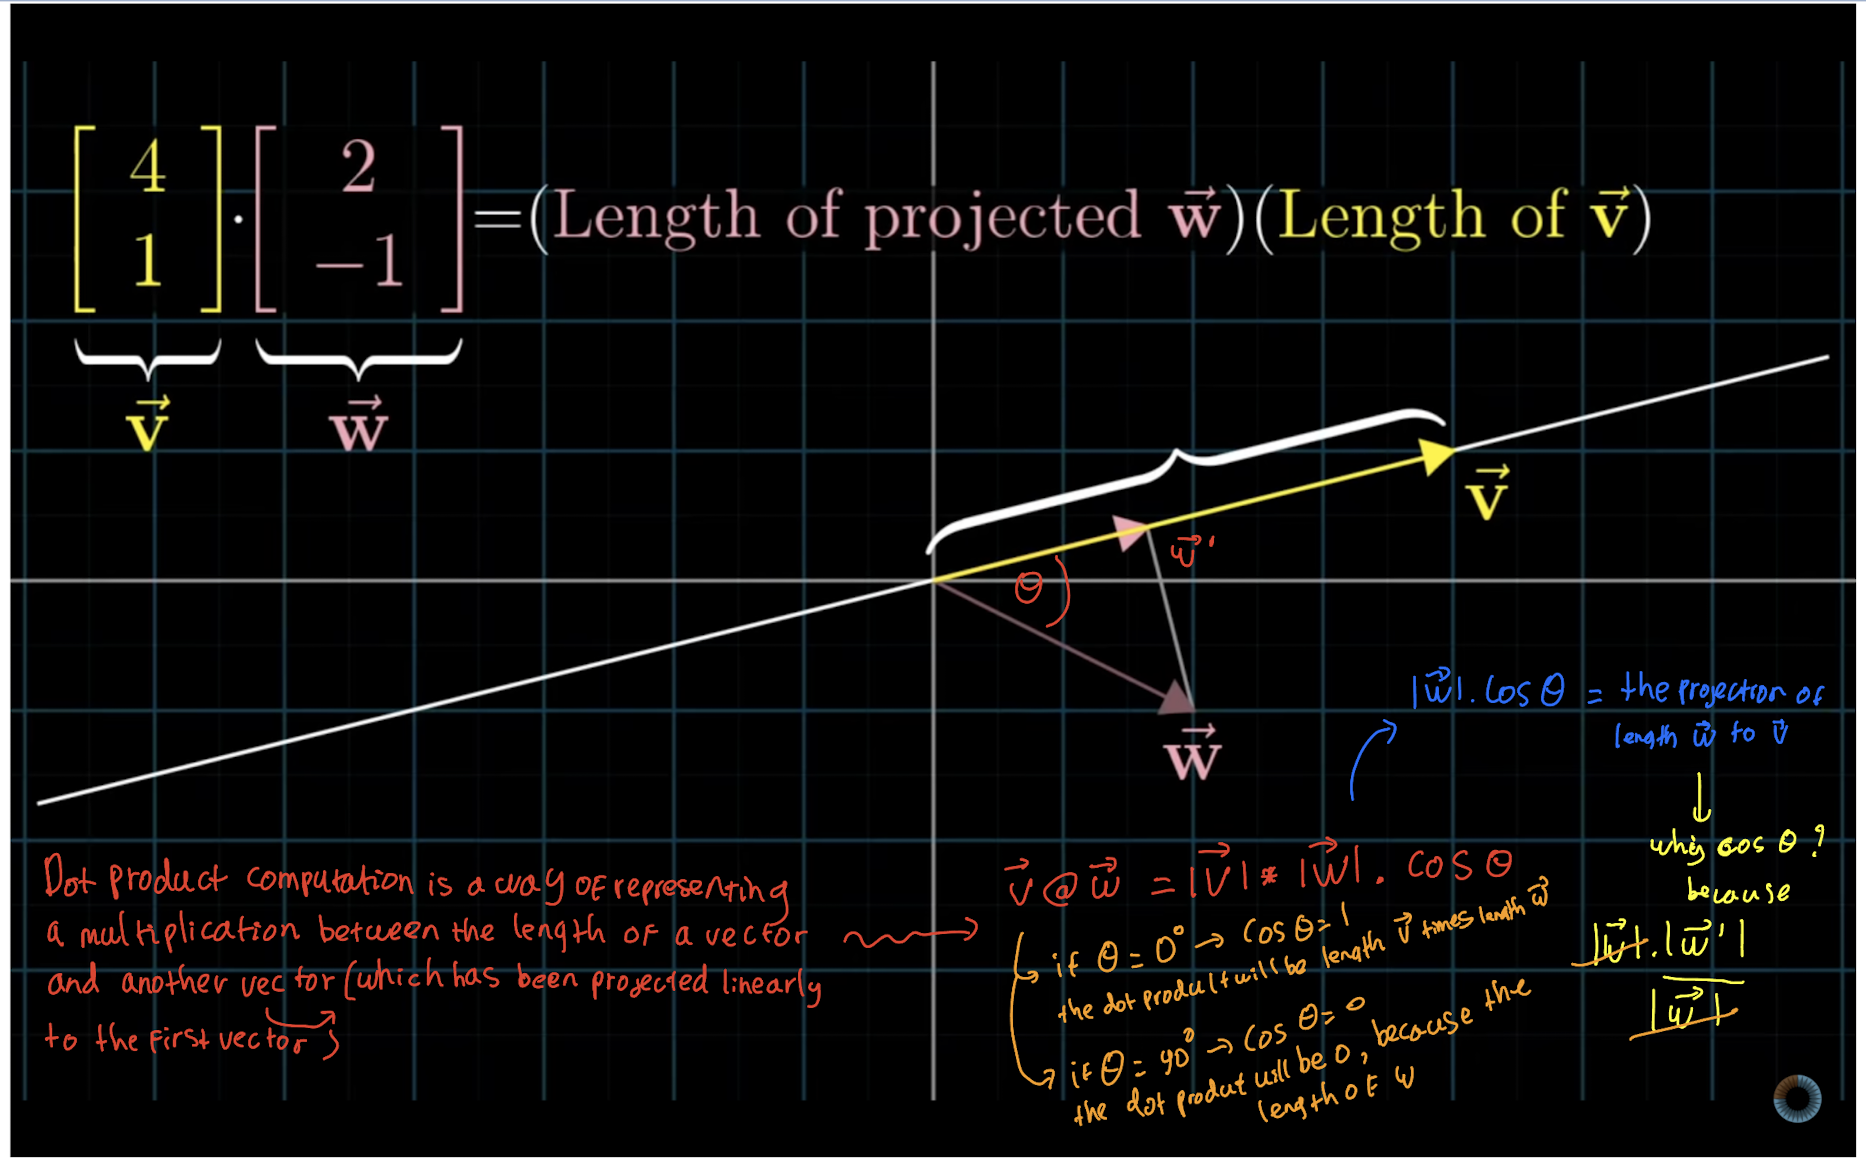 [4 1] · [2 −1] =(Length of projected w⃗)(Length of v⃗)
v⃗ w⃗
v⃗
w⃗'
θ
w⃗
|w⃗|. cos θ = the projection of
length w⃗ to v⃗
why cos θ ?
because
|w⃗|.|w⃗'|
|w⃗|
Dot product computation is a way of representing
a multiplication between the length of a vector
and another vector (which has been projected linearly
to the first vector)
v⃗ @ w⃗ = |v⃗| * |w⃗| . cos θ
if θ = 0° → cos θ = 1
the dot product will be length v⃗ times length w⃗
if θ = 90° → cos θ = 0
the dot produt will be 0, because the
length of w